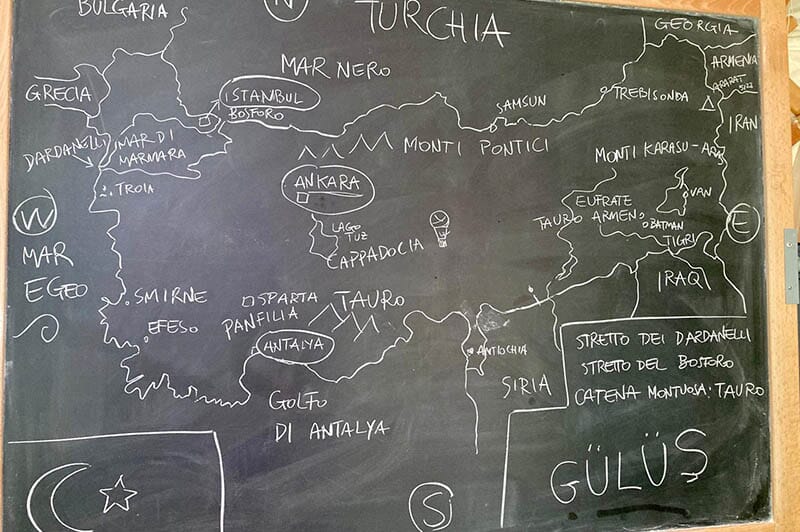 BULGARIA
N
TURCHIA
GEORGIA
MAR NERO
ARMENIA
GRECIA
ISTANBUL
BOSFORO
SAMSUN
TREBISONDA
ARARAT
5122
IRAN
DARDANELLI
MAR DI
MARMARA
MONTI PONTICI
MONTI KARASU-ARAS
TROIA
ANKARA
VAN
W
EUFRATE
TAURO ARMENO
BATMAN
E
MAR
EGEO
LAGO
TUZ
CAPPADOCIA
TIGRI
IRAQ
SMIRNE
ISPARTA
TAURO
PANFILIA
EFESO
ANTALYA
ANTIOCHIA
SIRIA
STRETTO DEI DARDANELLI
STRETTO DEL BOSFORO
CATENA MONTUOSA: TAURO
GOLFO
DI ANTALYA
GÜLÜŞ
S